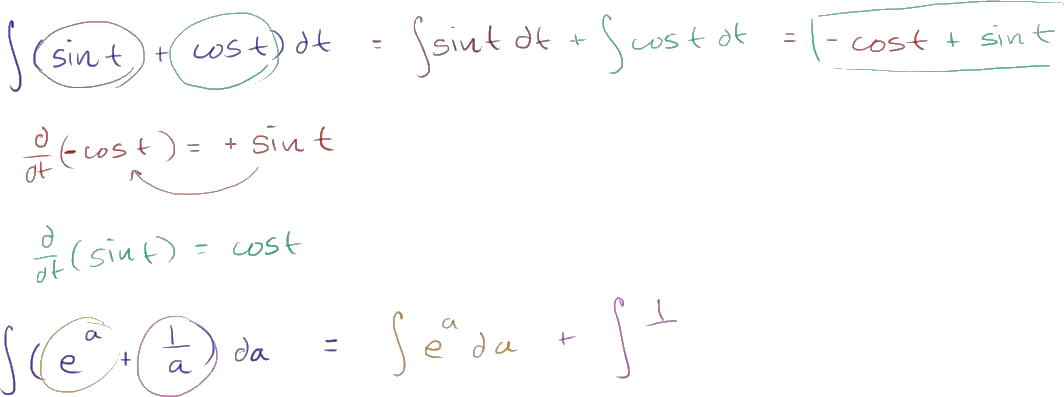 ∫(sin t + cos t) dt = ∫ sin t dt + ∫ cos t dt = - cos t + sin t
d/dt (-cos t) = + sin t
d/dt (sin t) = cos t
∫(e^a + 1/a) da = ∫ e^a da + ∫ 1